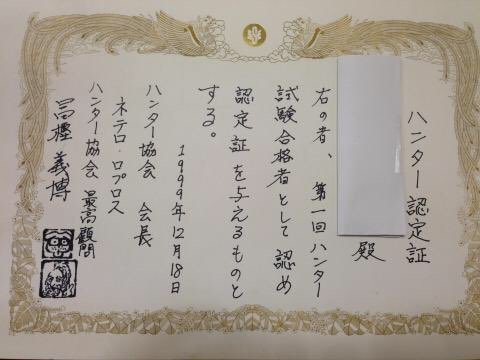 ハンター認定証
殿
右の者、第一回ハンター
試験合格者として認め
認定証を与えるものと
する。
1999年12月18日
ハンター協会 会長
ネテロ・ロプロス
ハンター協会 最高顧問
冨樫義博